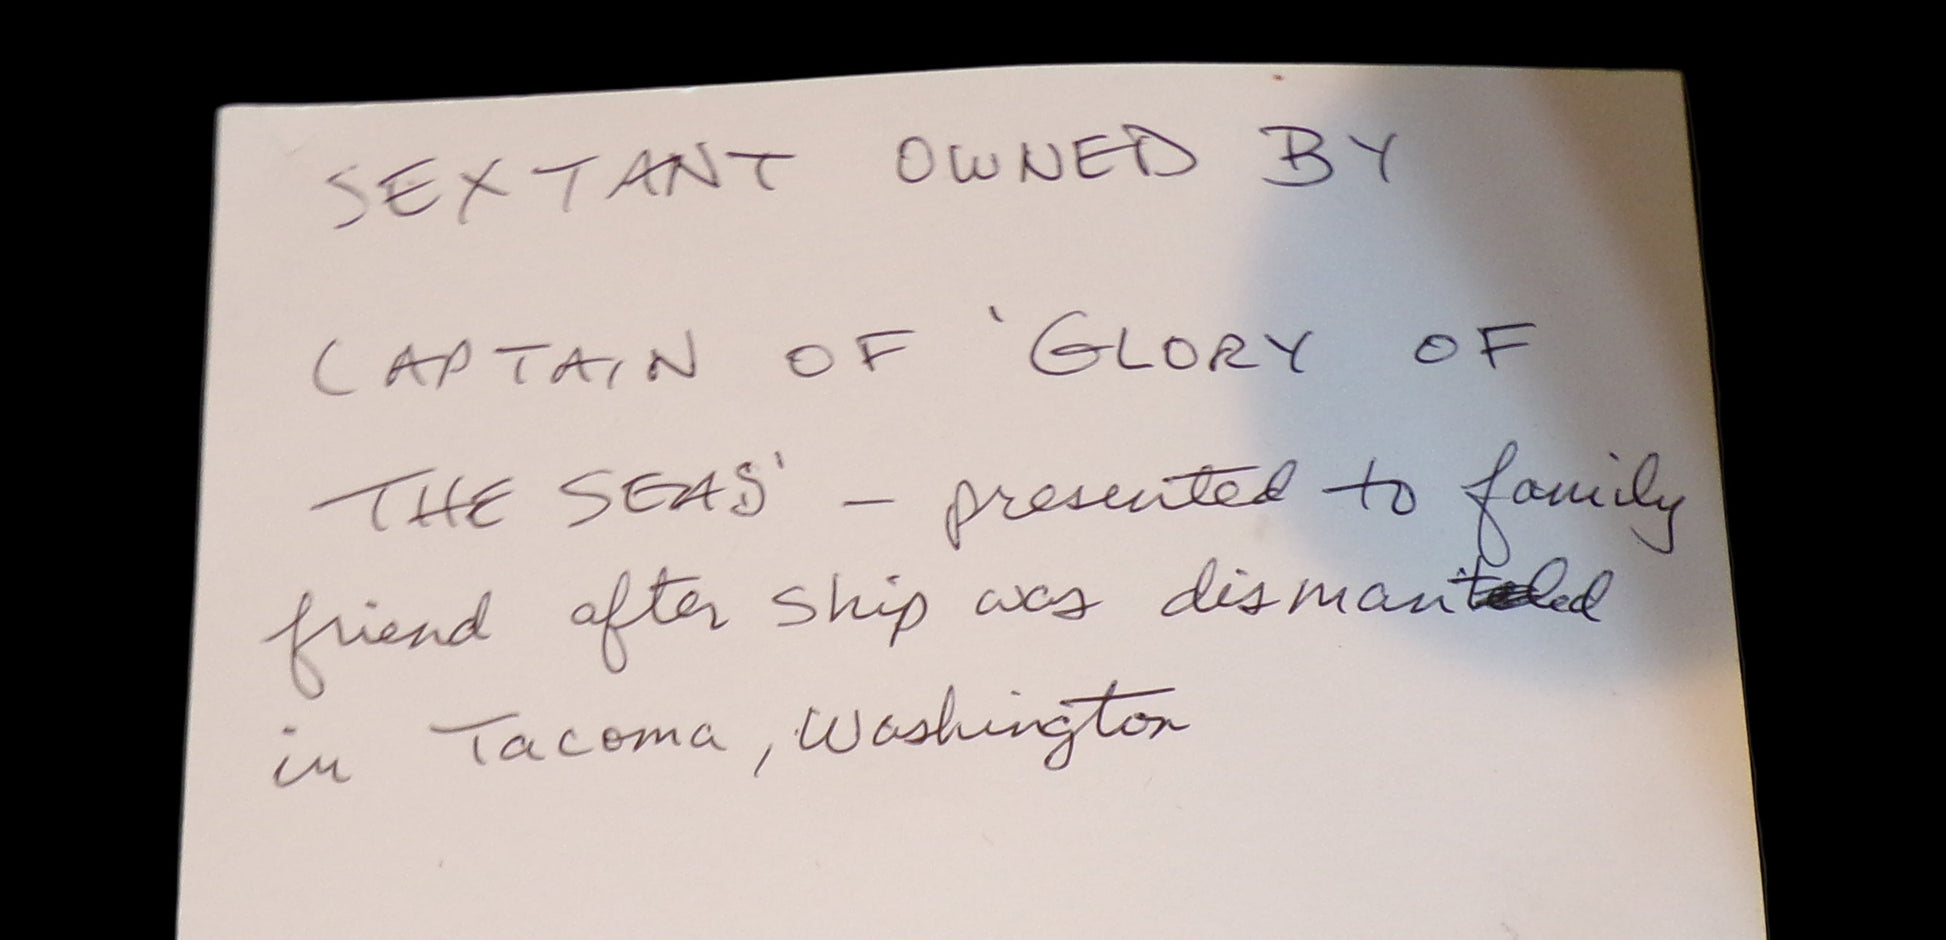 SEXTANT OWNED BY
CAPTAIN OF 'GLORY OF
THE SEAS' – presented to family
friend after ship was dismantled
in Tacoma, Washington